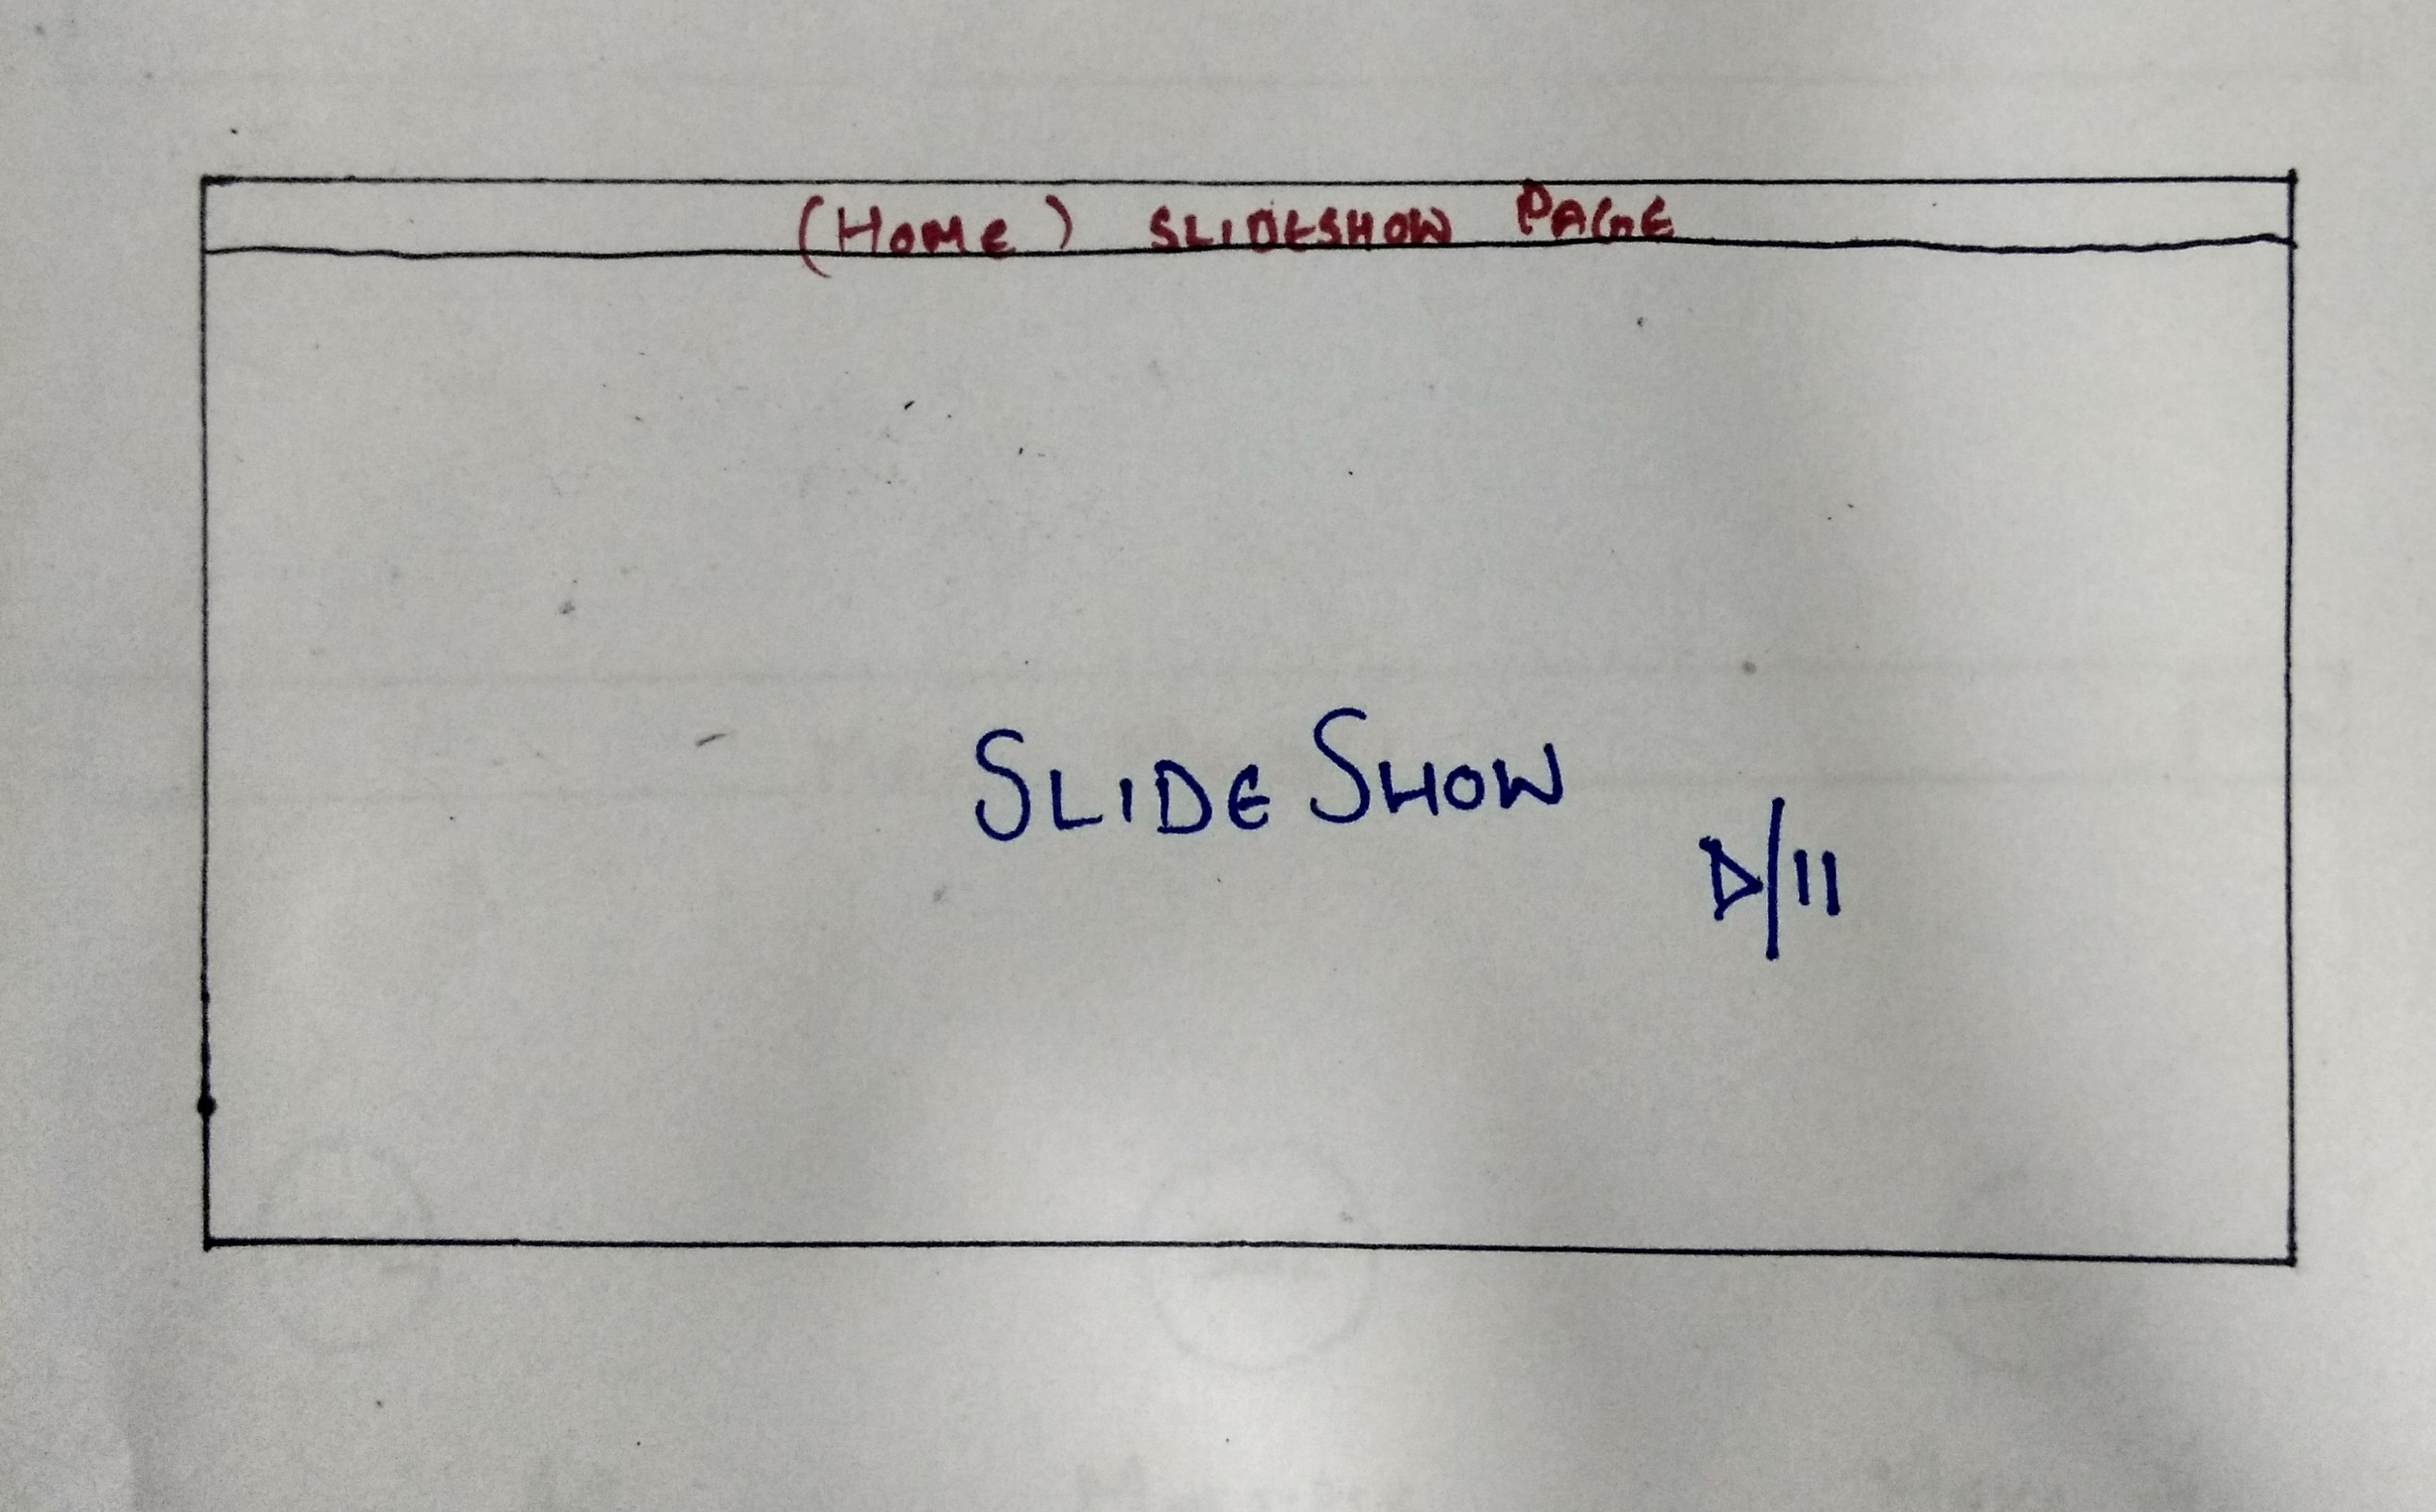 (HOME) SLIDESHOW PAGE
SLIDE SHOW
▷/II